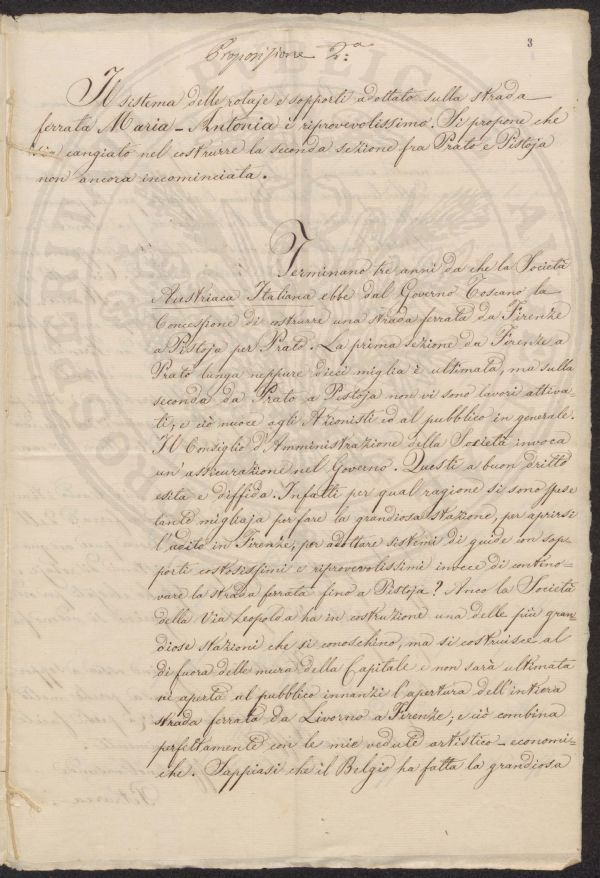 3
Proposizione 2.a
Il sistema delle rotaje e sopporti adottato sulla strada
ferrata Maria-Antonia è riprovevolissimo. Si propone che
sia cangiato nel costrurre la seconda sezione fra Prato e Pistoja
non ancora incominciata.
Terminano tre anni da che la Società
Austriaca Italiana ebbe dal Governo Toscano la
Concessione di costrurre una strada ferrata da Firenze
a Pistoja per Prato. La prima sezione da Firenze a
Prato lunga neppure dieci miglia è ultimata, ma sulla
seconda da Prato a Pistoja non vi sono lavori attiva-
ti, e ciò nuoce agli Azionisti ed al pubblico in generale.
Il Consiglio d'Amministrazione della Società invoca
un'assicurazione nel Governo. Questi a buon dritto
esita e diffida. Infatti per qual ragione si sono spese
tante migliaja per fare la grandiosa stazione, per aprirsi
l'adito in Firenze, per adottare sistemi di guide con sop-
porti costosissimi e riprovevolissimi invece di contino-
vare la strada ferrata fino a Pistoja? Anco la Società
della Via Leopolda ha in costruzione una delle più gran-
diose stazioni che si conoschino, ma si costruisce al
di fuora delle mura della Capitale e non sarà ultimata
nè aperta al pubblico innanzi l'apertura dell'intiera
strada ferrata da Livorno a Firenze; e ciò combina
perfettamente con le mie vedute artistico-economi-
che. Sappiasi che il Belgio ha fatta la grandiosa